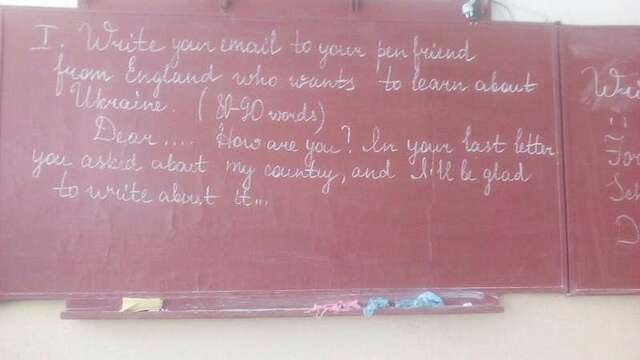 I. Write your email to your pen friend
from England who wants to learn about
Ukraine. (80-90 words)
Dear .... How are you? In your last letter
you asked about my country, and I'll be glad
to write about it...
Wri